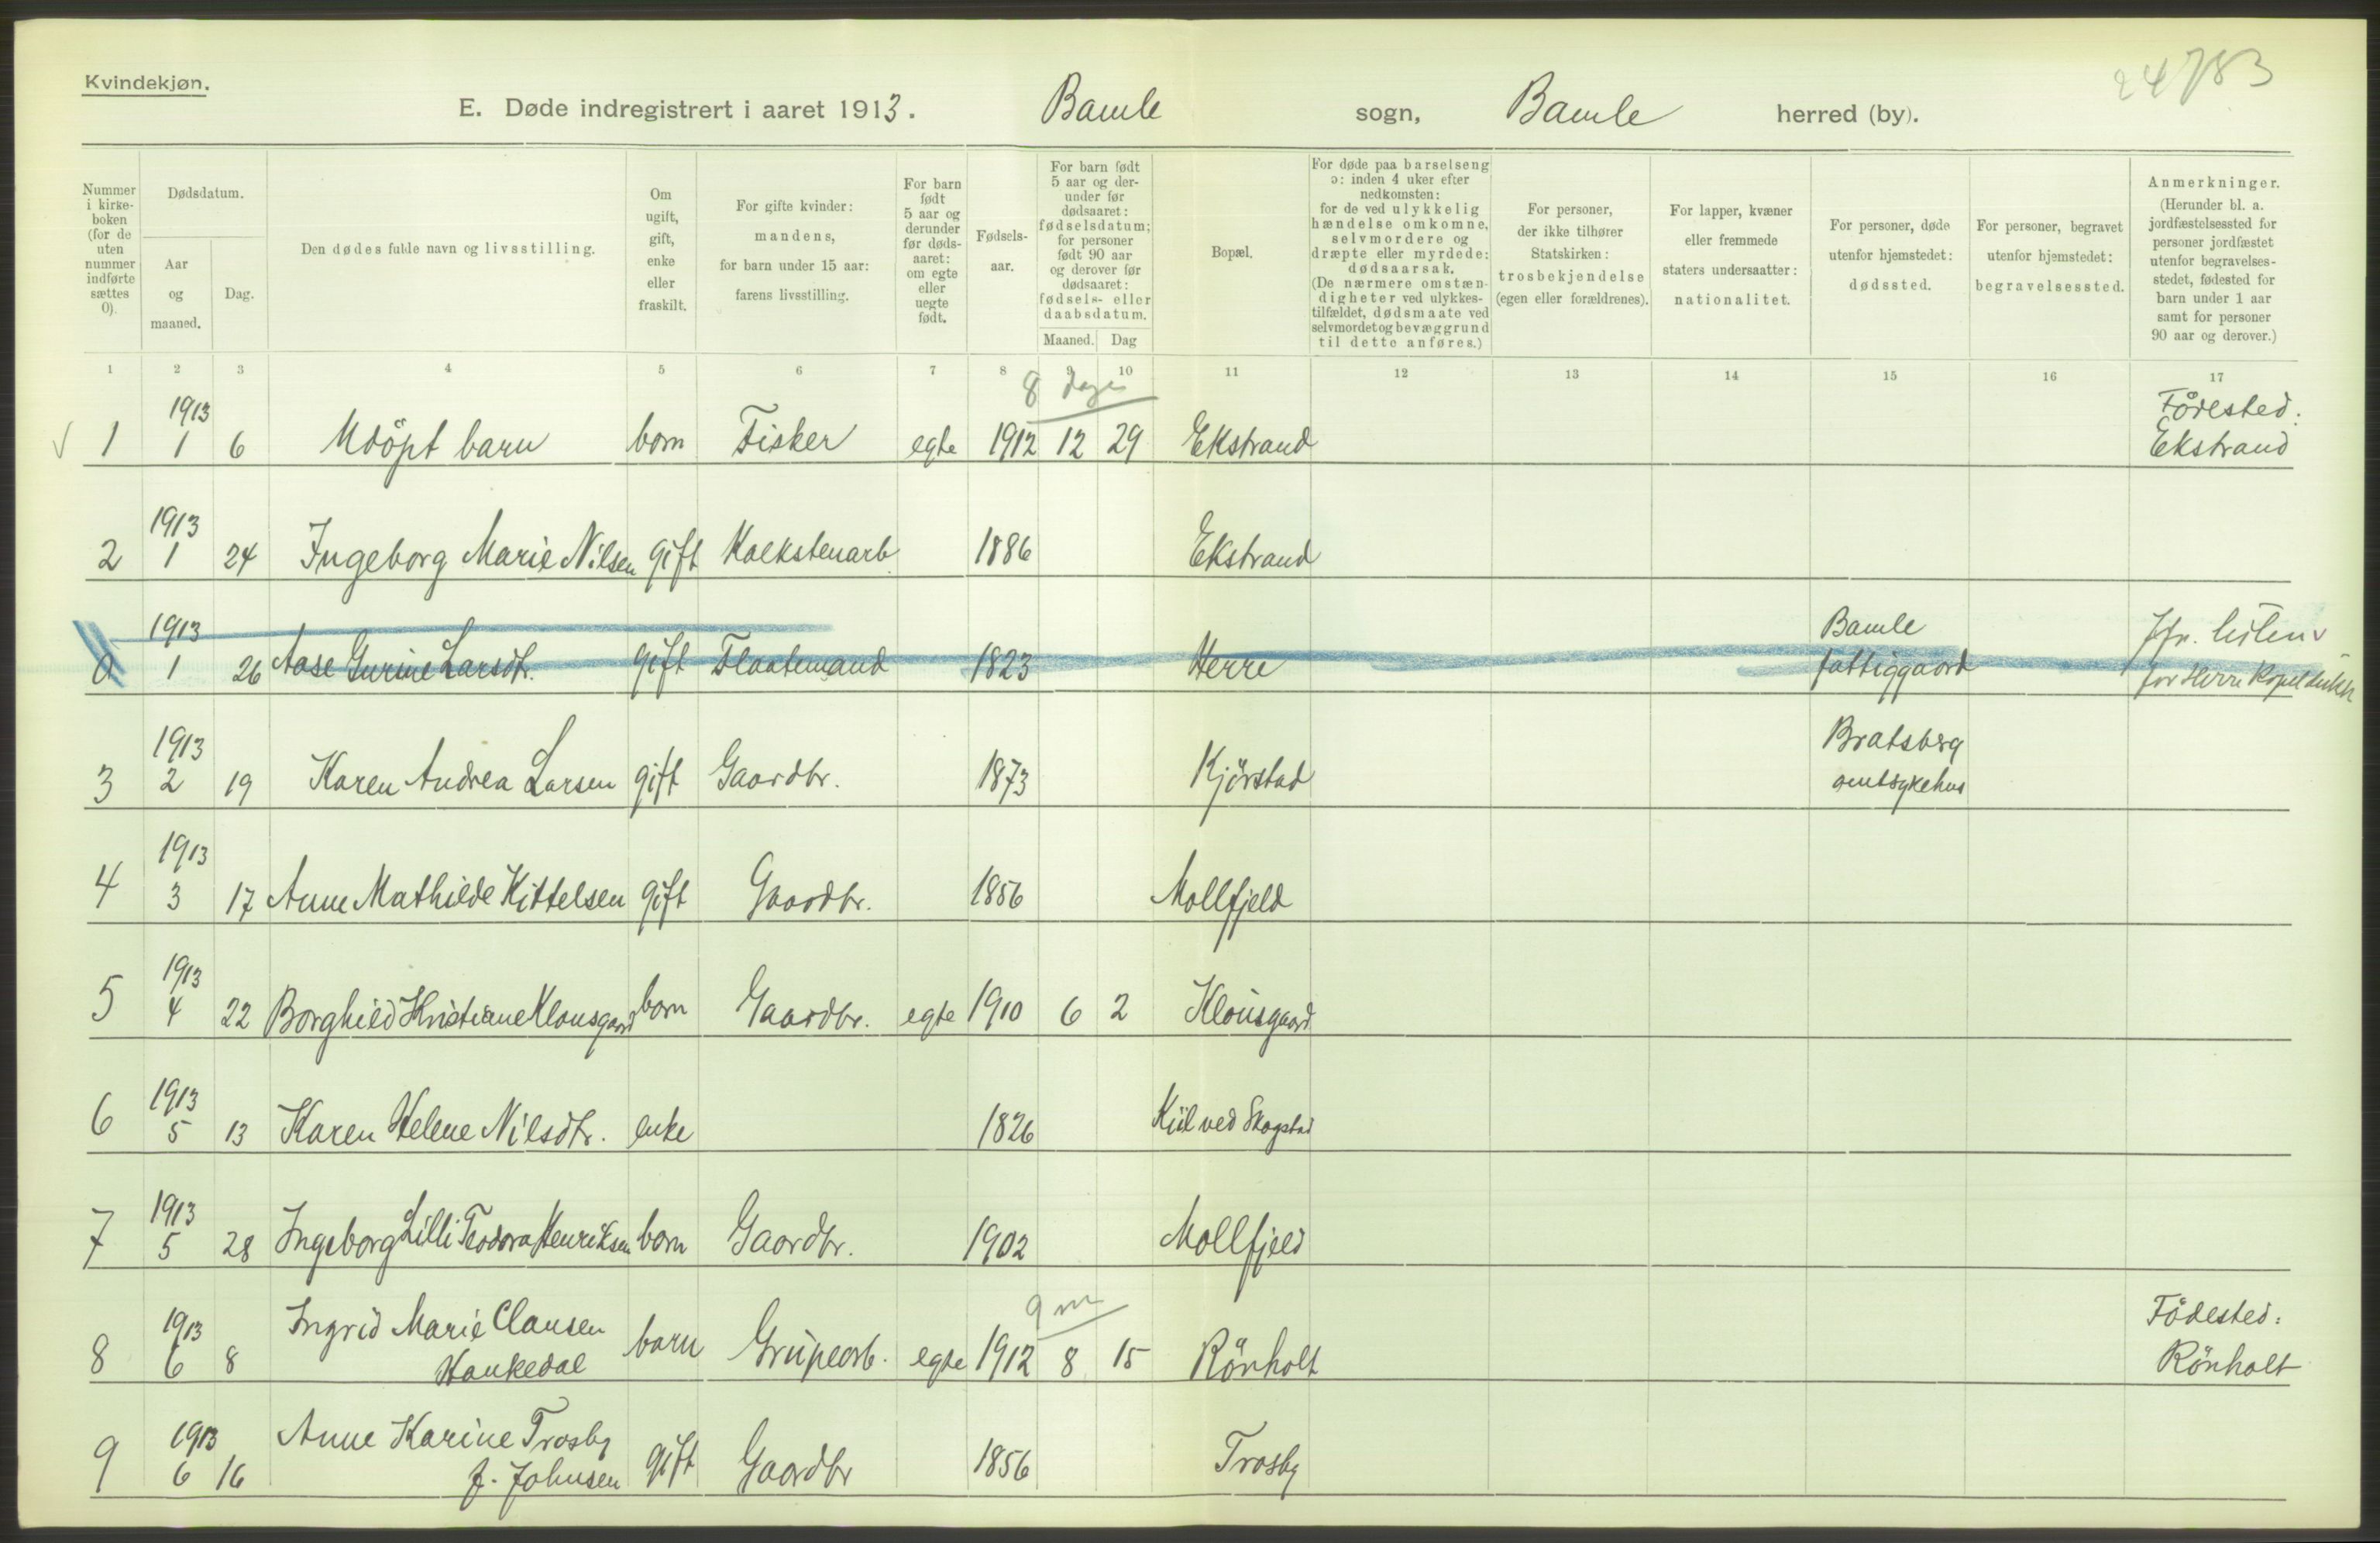 Kvindekjøn.
24783
E. Døde indregistrert i aaret 1913. Bamle sogn, Bamle herred (by).
Nummer i kirke-boken (for de uten nummer indførte sættes 0).
Dødsdatum.
Aar og maaned.
Dag.
Den dødes fulde navn og livsstilling.
Om ugift, gift, enke eller fraskilt.
For gifte kvinder: mandens, for barn under 15 aar: farens livsstilling.
For barn født 5 aar og derunder før døds-aaret: om egte eller uegte født.
Fødsels-aar.
For barn født 5 aar og der-under før dødsaaret: fødselsdatum; for personer født 90 aar og derover før dødsaaret: fødsels- eller daabsdatum.
Maaned. Dag
Bopæl.
For døde paa barselseng ɔ: inden 4 uker efter nedkomsten: for de ved ulykkelig hændelse omkomne, selvmordere og dræpte eller myrdede: dødsaarsak. (De nærmere omstæn-digheter ved ulykkes-tilfældet, dødsmaate ved selvmordet og bevæggrund til dette anføres.)
For personer, der ikke tilhører Statskirken: trosbekjendelse (egen eller forældrenes).
For lapper, kvæner eller fremmede staters undersaatter: nationalitet.
For personer, døde utenfor hjemstedet: dødssted.
For personer, begravet utenfor hjemstedet: begravelsessted.
Anmerkninger. (Herunder bl. a. jordfæstelsessted for personer jordfæstet utenfor begravelses-stedet, fødested for barn under 1 aar samt for personer 90 aar og derover.)
1 2 3 4 5 6 7 8 9 10 11 12 13 14 15 16 17
8 dage
1913 Födested:
√ 1 1 6 Udöpt barn barn Fisker egte 1912 12 29 Ekstrand Ekstrand
1913
2 1 24 Ingeborg Marie Nilsen gift Kalkstenarb. 1886 Ekstrand
1913 Bamle Jfr. listen √
0 1 26 Aase Gurine Larsdtr. gift Flaatemand 1823 Herre fattiggaard for Herre
1913 Bratsberg
3 2 19 Karen Andrea Larsen gift Gaardbr. 1873 Kjörstad amtsykehus
1913
4 3 17 Anne Mathilde Kittelsen gift Gaardbr. 1856 Mollfjeld
1913
5 4 22 Borghild Kristiane Klausgaard barn Gaardbr. egte 1910 6 2 Klausgaard
1913
6 5 13 Karen Helene Nilsdtr. enke 1826 Kiil ved Skogstad
1913
7 5 28 Ingeborg Lilli Teodora Henriksen barn Gaardbr. 1902 Mollfjeld
9 m
1913 Ingrid Marie Clausen Födested:
8 6 8 Hankedal barn Grubearb. egte 1912 8 15 Rönholt Rönholt
1913 Anne Karine Trosby
9 6 16 f. Johnsen gift Gaardbr 1856 Trosby